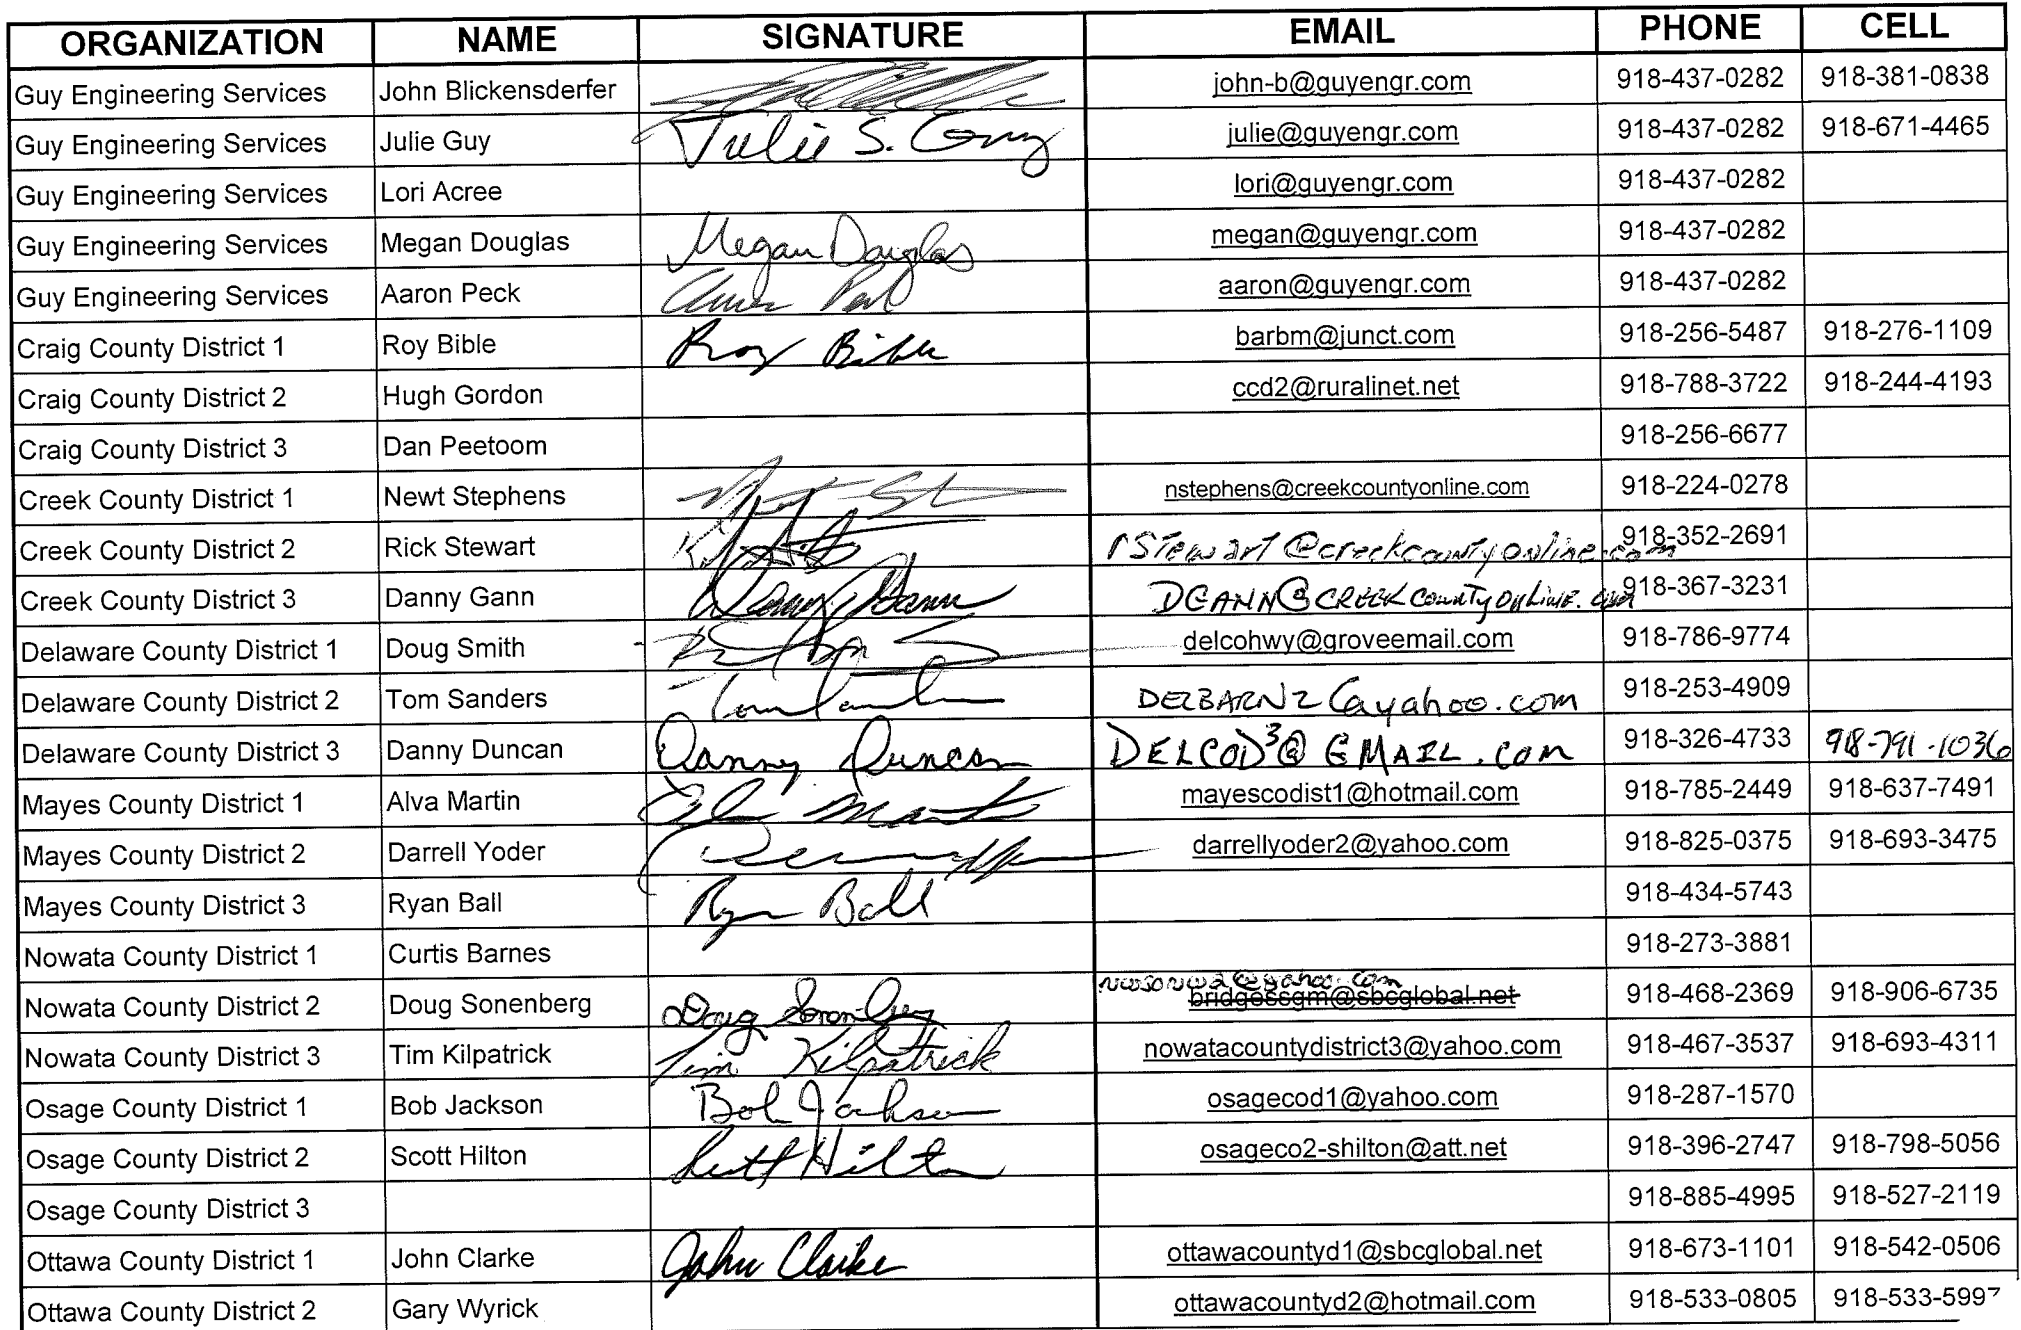 ORGANIZATION NAME SIGNATURE EMAIL PHONE CELL
Guy Engineering Services John Blickensderfer john-b@guyengr.com 918-437-0282 918-381-0838
Guy Engineering Services Julie Guy Julie S. Guy julie@guyengr.com 918-437-0282 918-671-4465
Guy Engineering Services Lori Acree lori@guyengr.com 918-437-0282
Guy Engineering Services Megan Douglas Megan Douglas megan@guyengr.com 918-437-0282
Guy Engineering Services Aaron Peck aaron@guyengr.com 918-437-0282
Craig County District 1 Roy Bible Roy Bible barbm@junct.com 918-256-5487 918-276-1109
Craig County District 2 Hugh Gordon ccd2@ruralinet.net 918-788-3722 918-244-4193
Craig County District 3 Dan Peetoom 918-256-6677
Creek County District 1 Newt Stephens nstephens@creekcountyonline.com 918-224-0278
Creek County District 2 Rick Stewart rStewart@creekcountyonline.com 918-352-2691
Creek County District 3 Danny Gann Danny Gann 918-367-3231
Delaware County District 1 Doug Smith delcohwy@groveemail.com 918-786-9774
Delaware County District 2 Tom Sanders 918-253-4909
Delaware County District 3 Danny Duncan Danny Duncan 918-326-4733 918-791-1036
Mayes County District 1 Alva Martin Alva Martin mayescodist1@hotmail.com 918-785-2449 918-637-7491
Mayes County District 2 Darrell Yoder darrellyoder2@yahoo.com 918-825-0375 918-693-3475
Mayes County District 3 Ryan Ball Ryan Ball 918-434-5743
Nowata County District 1 Curtis Barnes 918-273-3881
Nowata County District 2 Doug Sonenberg Doug Sonenberg bridgessgm@sbcglobal.net 918-468-2369 918-906-6735
Nowata County District 3 Tim Kilpatrick Tim Kilpatrick nowatacountydistrict3@yahoo.com 918-467-3537 918-693-4311
Osage County District 1 Bob Jackson Bob Jackson osagecod1@yahoo.com 918-287-1570
Osage County District 2 Scott Hilton Scott Hilton osageco2-shilton@att.net 918-396-2747 918-798-5056
Osage County District 3 918-885-4995 918-527-2119
Ottawa County District 1 John Clarke John Clarke ottawacountyd1@sbcglobal.net 918-673-1101 918-542-0506
Ottawa County District 2 Gary Wyrick ottawacountyd2@hotmail.com 918-533-0805 918-533-5997